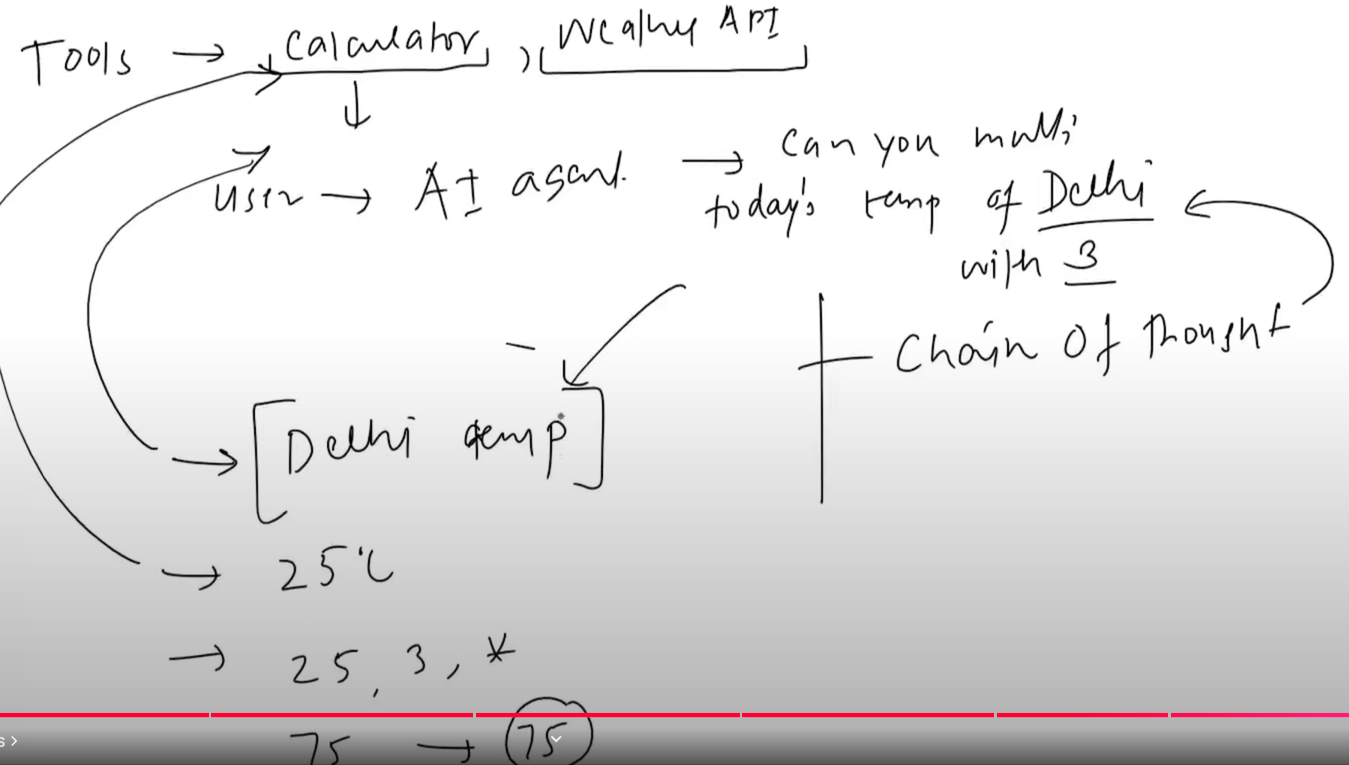 Tools → Calculator, Weather API
User → AI agent → Can you multi
today's temp of Delhi
with 3
Chain Of Thought
→ [Delhi temp]
→ 25°C
→ 25, 3, *
75 → 75